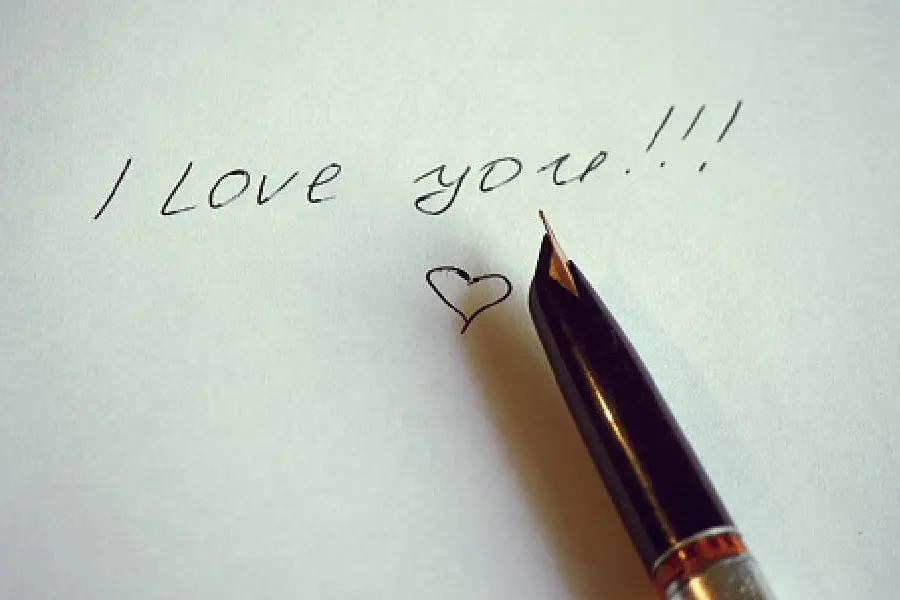 I Love you!!!